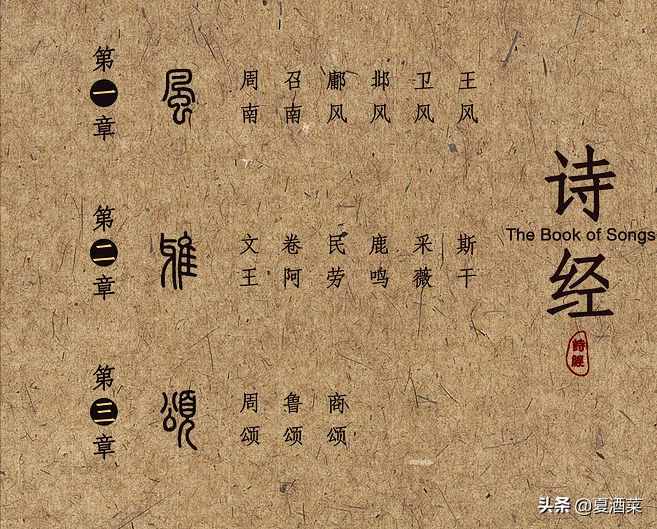 诗经
The Book of Songs
詩經
第一章
風
周南 召南 鄘风 邶风 卫风 王风
第二章
雅
文王 卷阿 民劳 鹿鸣 采薇 斯干
第三章
頌
周颂 鲁颂 商颂
头条 @夏酒菜